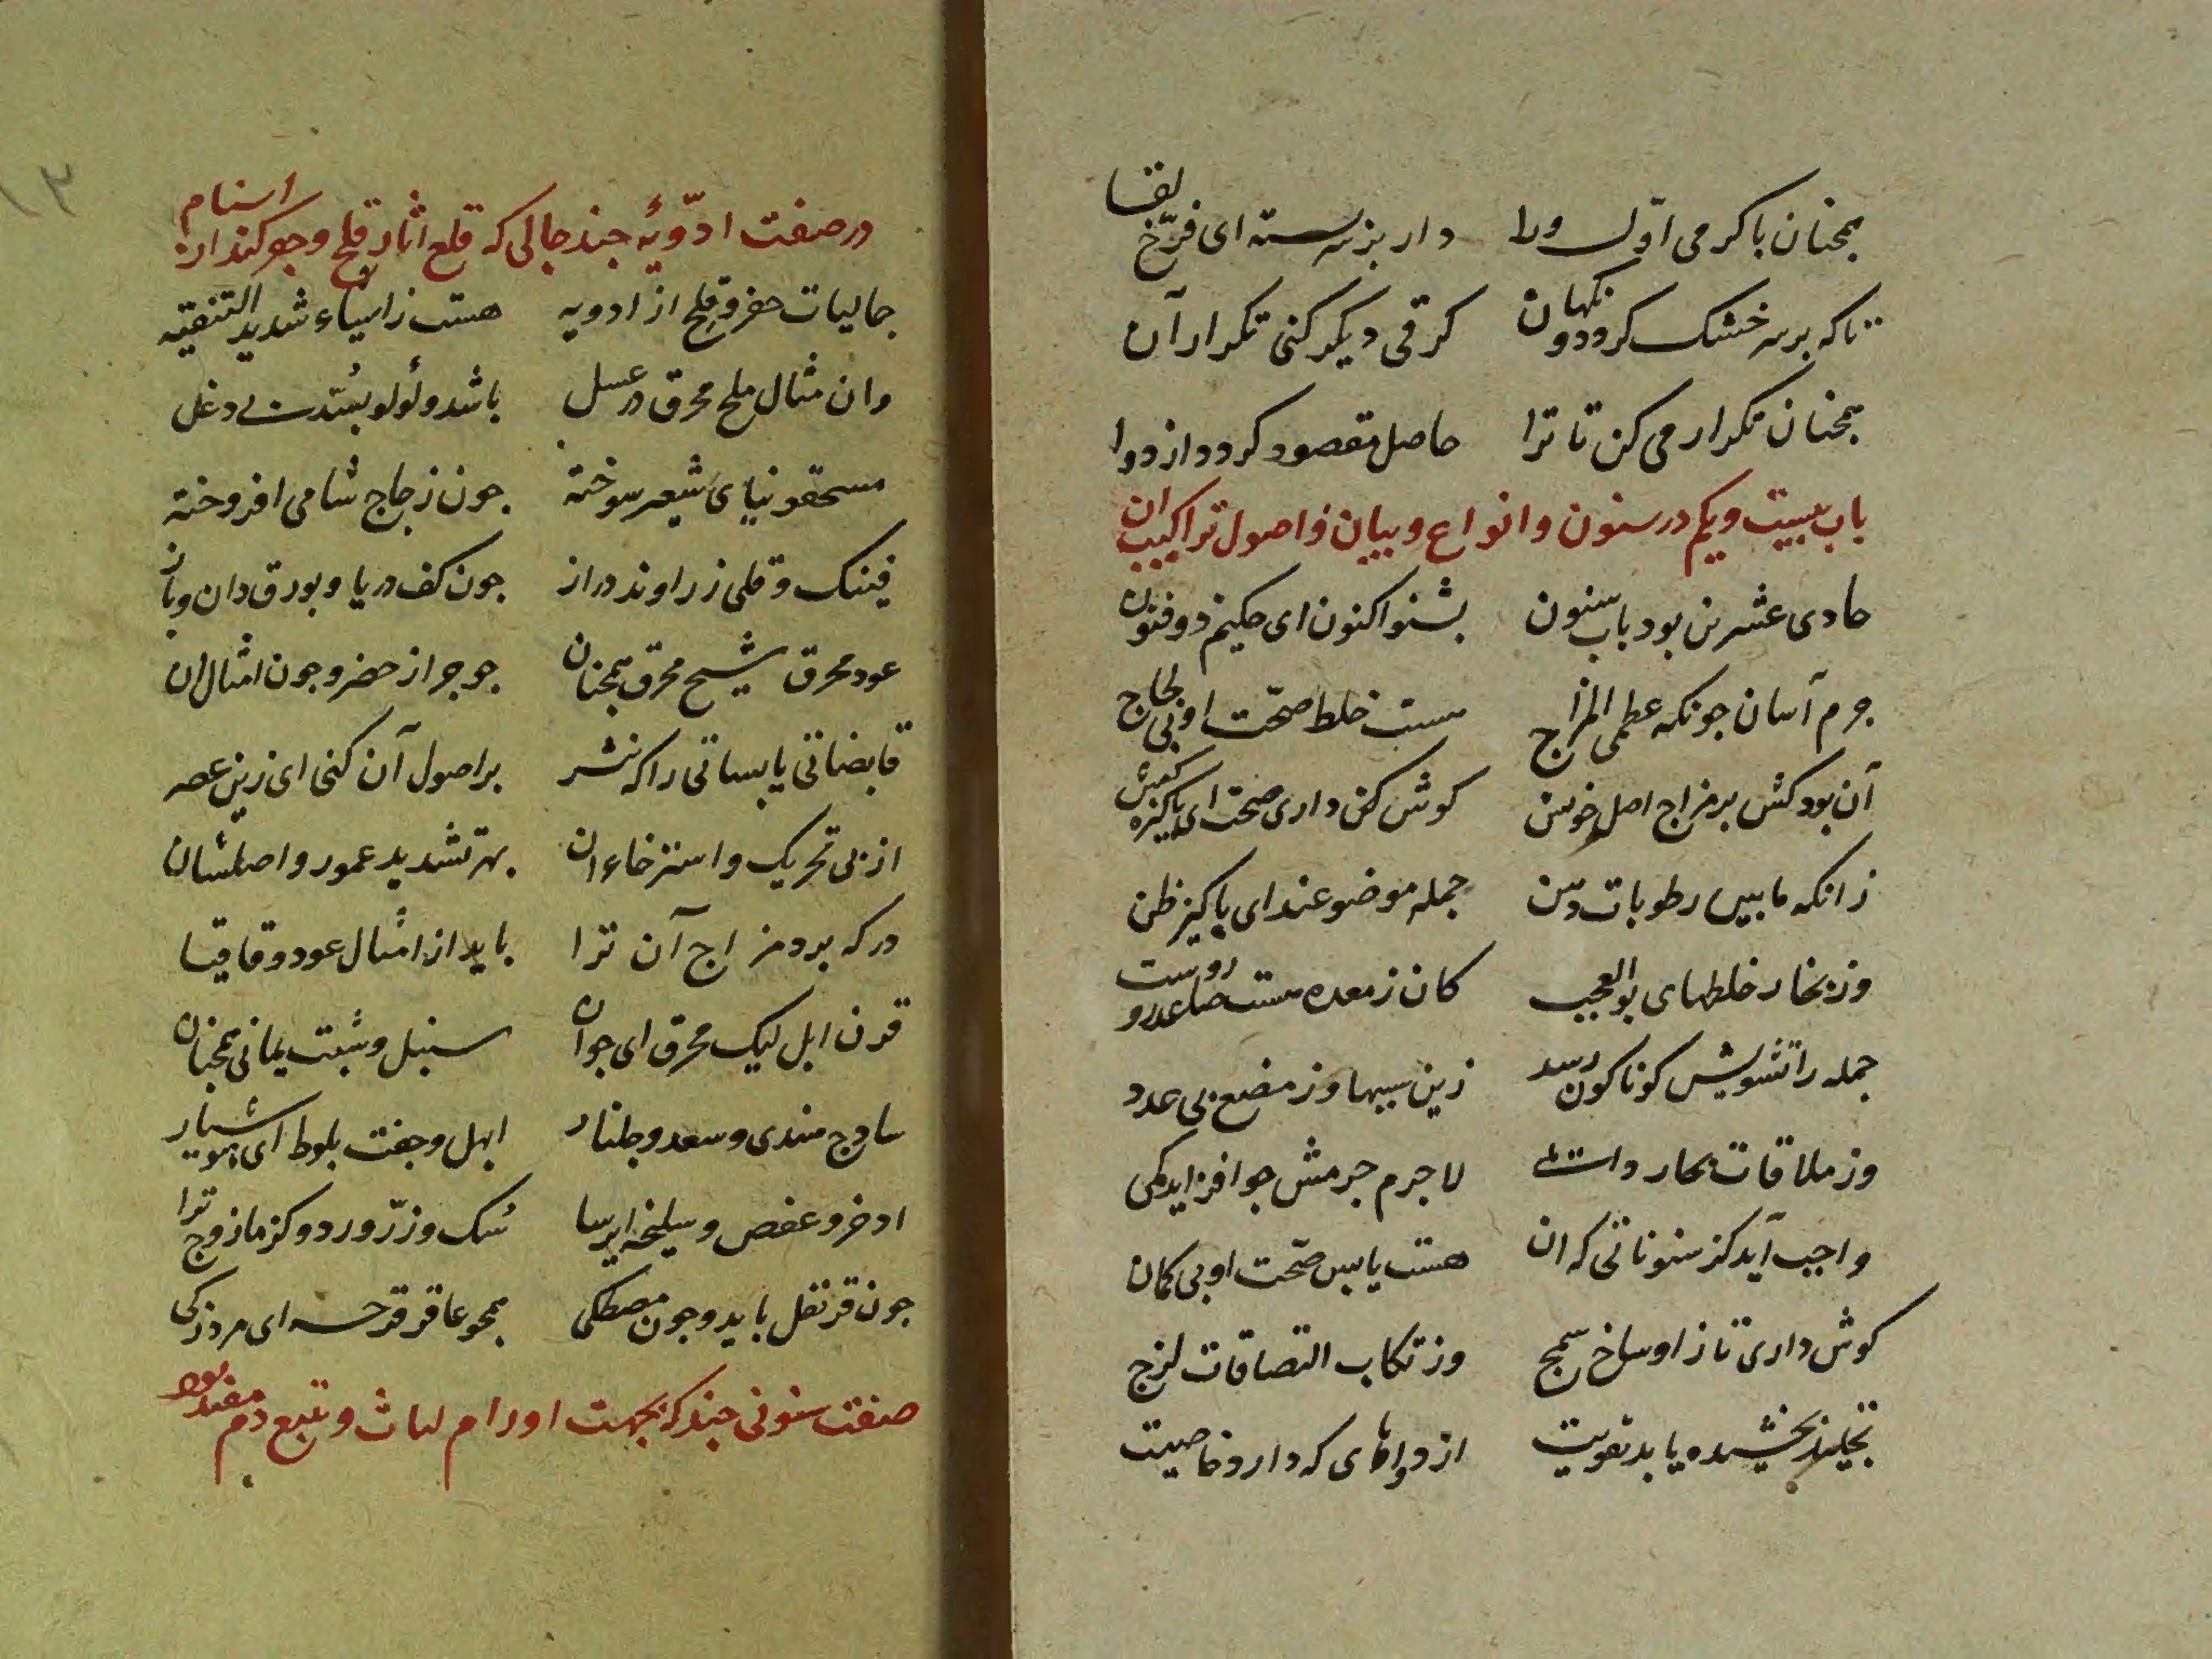 همچنان با کرمی اول ورا دار بزسته ای فرخ لقا
تا که برسر خشک کردد و نکهان کرقی دیکر کنی تکرار آن
همچنان تکرار می کن تا ترا حاصل مقصود کردد از دوا
باب بیست و یکم در سنون و انواع و بیان و اصول تراکیب ان
حادی عشرین بود باب سنون بشنو اکنون ای حکیم ذوفنون
جرم آسنان جونکه عظمی المزاج هست خلط صحت او بی لجاج
آن بود کش بر مزاج اصل خویش کوش کن داری صحت ای پاکیزه کیش
زانکه مابین رطوبات دهن جمله موضوعند ای پاکیز ظن
وز بخار خلطهای بوالعجب کان ز معده هست صاعد
جمله را تشویش کوناکون رسد زین سببها وز مضغ بی عدد
وز ملاقات بحار لاجرم جرمش جو افزاید
واجب آید کز سنوناتی که ان هست یابس صحت او بی کمان
کوش داری تا ز اوساخ سمج وز تکاب التصاقات لزج
بخشیده یابد تقویت از دواهای که دارد خاصیت
در صفت ادویهٔ جند جالی که قلع اثار قلح و جو کند از اسنام
جالیات حفر و قلح از ادویه هست ز اسیاء شدید التنقیه
وان مثال ملح محرق در عسل باشد و لولو بسّدت بی دغل
مسحقونیای شعیر سوخته جون زجاج شامی افروخته
فینک و قلی زراوند دراز جون کف دریا و بورق دان وباز
عود محرق شیح محرق همچنان جو جر از حضر و جون امثال ان
قابضاتی یابساتی را که نشر بر اصول آن کنی ای زین عصر
از پی تحریک و استرخاء ان بهر تشدید عمور و اصلشان
در که برد مزاج آن ترا باید از امثال عود و قاقیا
قرن ابل لیک محرق ای جوان سنبل و شبت یمانی همچنان
ساذج هندی و سعد و جلنار ابهل و جفت بلوط ای هوشیار
اذخر و عفص و سلیخه ایرسا سک و زرّ ورد و کزمازوج ترا
جون قرنفل باید و جون مصطکی همچو عاقر قرحه ای مرد زکی
صفت سنونی جند که بجهت اورام لثات و تتبع دم مفید بود
۱۳